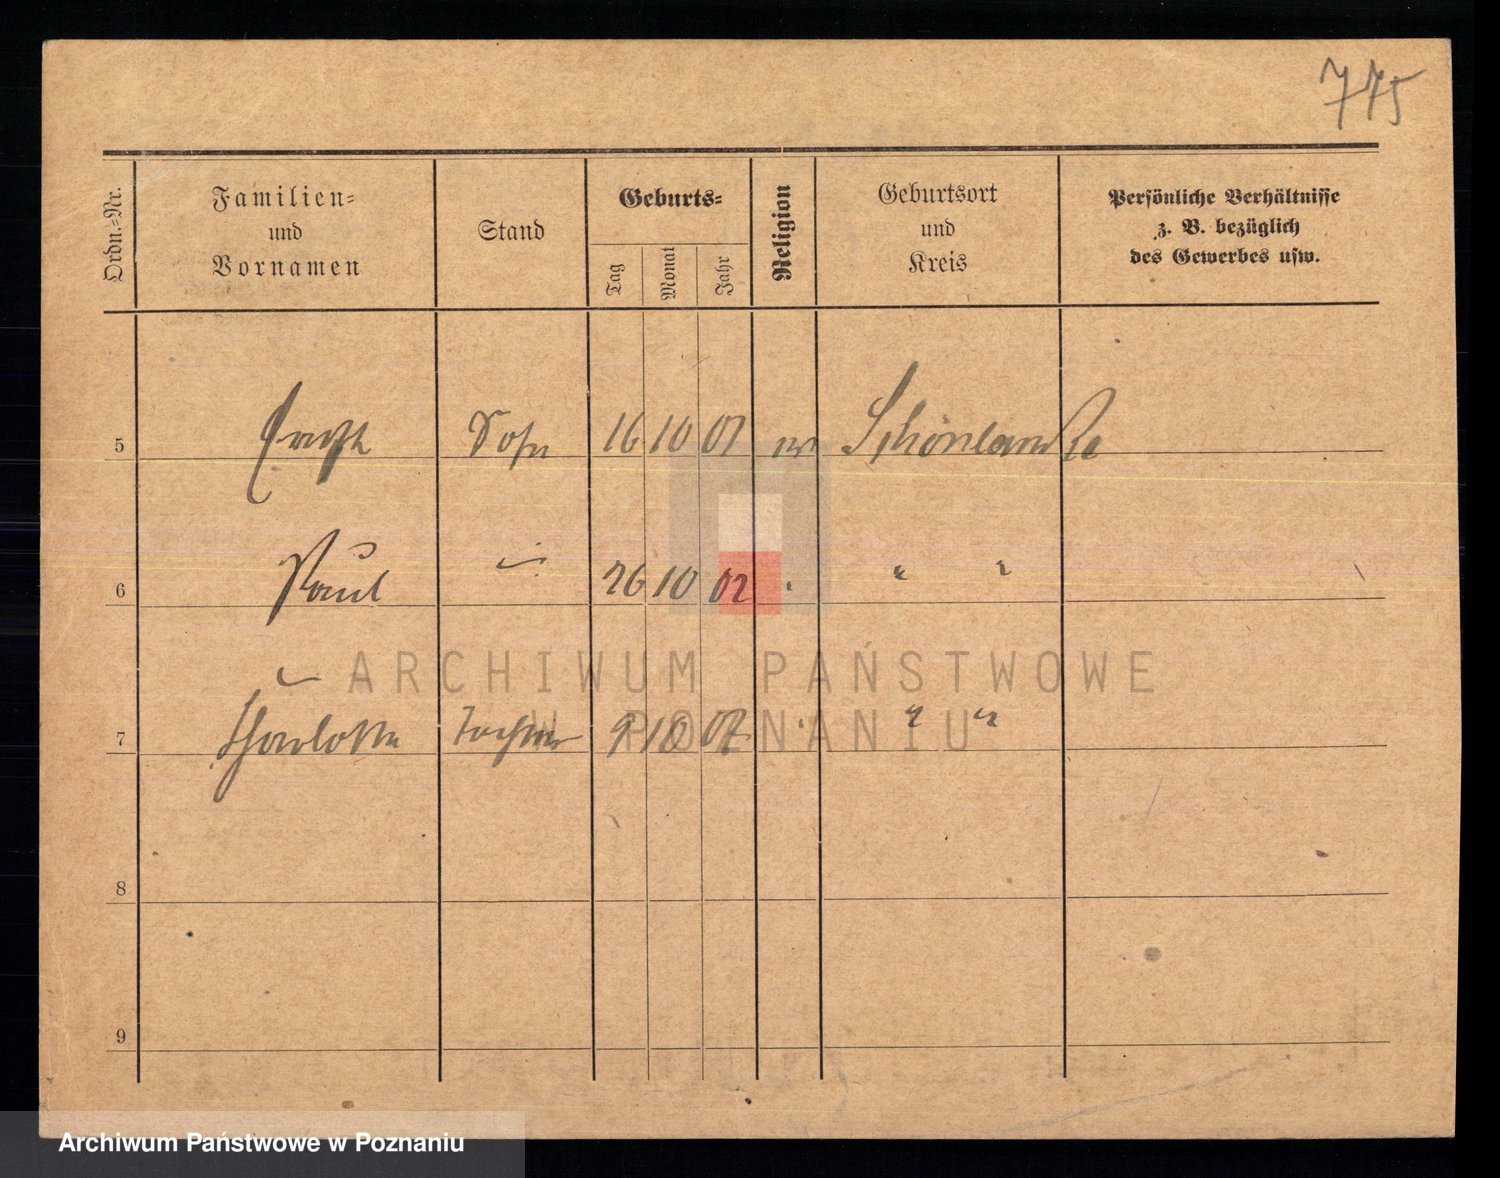 775
Ordn.-Nr. Familien- und Vornamen Stand Geburts- Tag Monat Jahr Religion Geburtsort und Kreis Persönliche Verhältnisse z. B. bezüglich des Gewerbes usw.
5 Sohn 16 10 01 ev Schönlanke
6 Paul " 26 10 02 " " "
7 Charlotte Tochter 9 10 07 " " "
8
9
ARCHIWUM PAŃSTWOWE
W POZNANIU
Archiwum Państwowe w Poznaniu